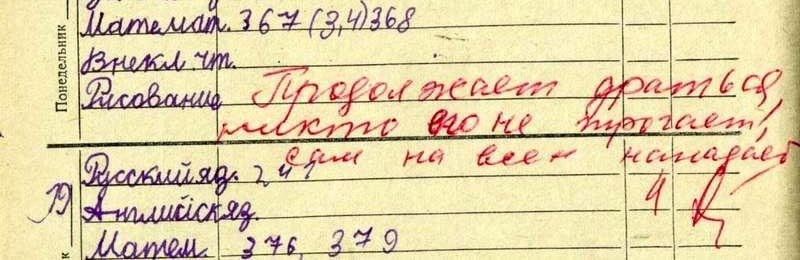 Понедельник
Математ. 367 (3,4) 368
Внекл. чт.
Рисование
Продолжает драться,
никто его не трогает!
сам на всех нападает
19
Русский яз. 247
Английск яз.
4
Матем. 376, 379
к